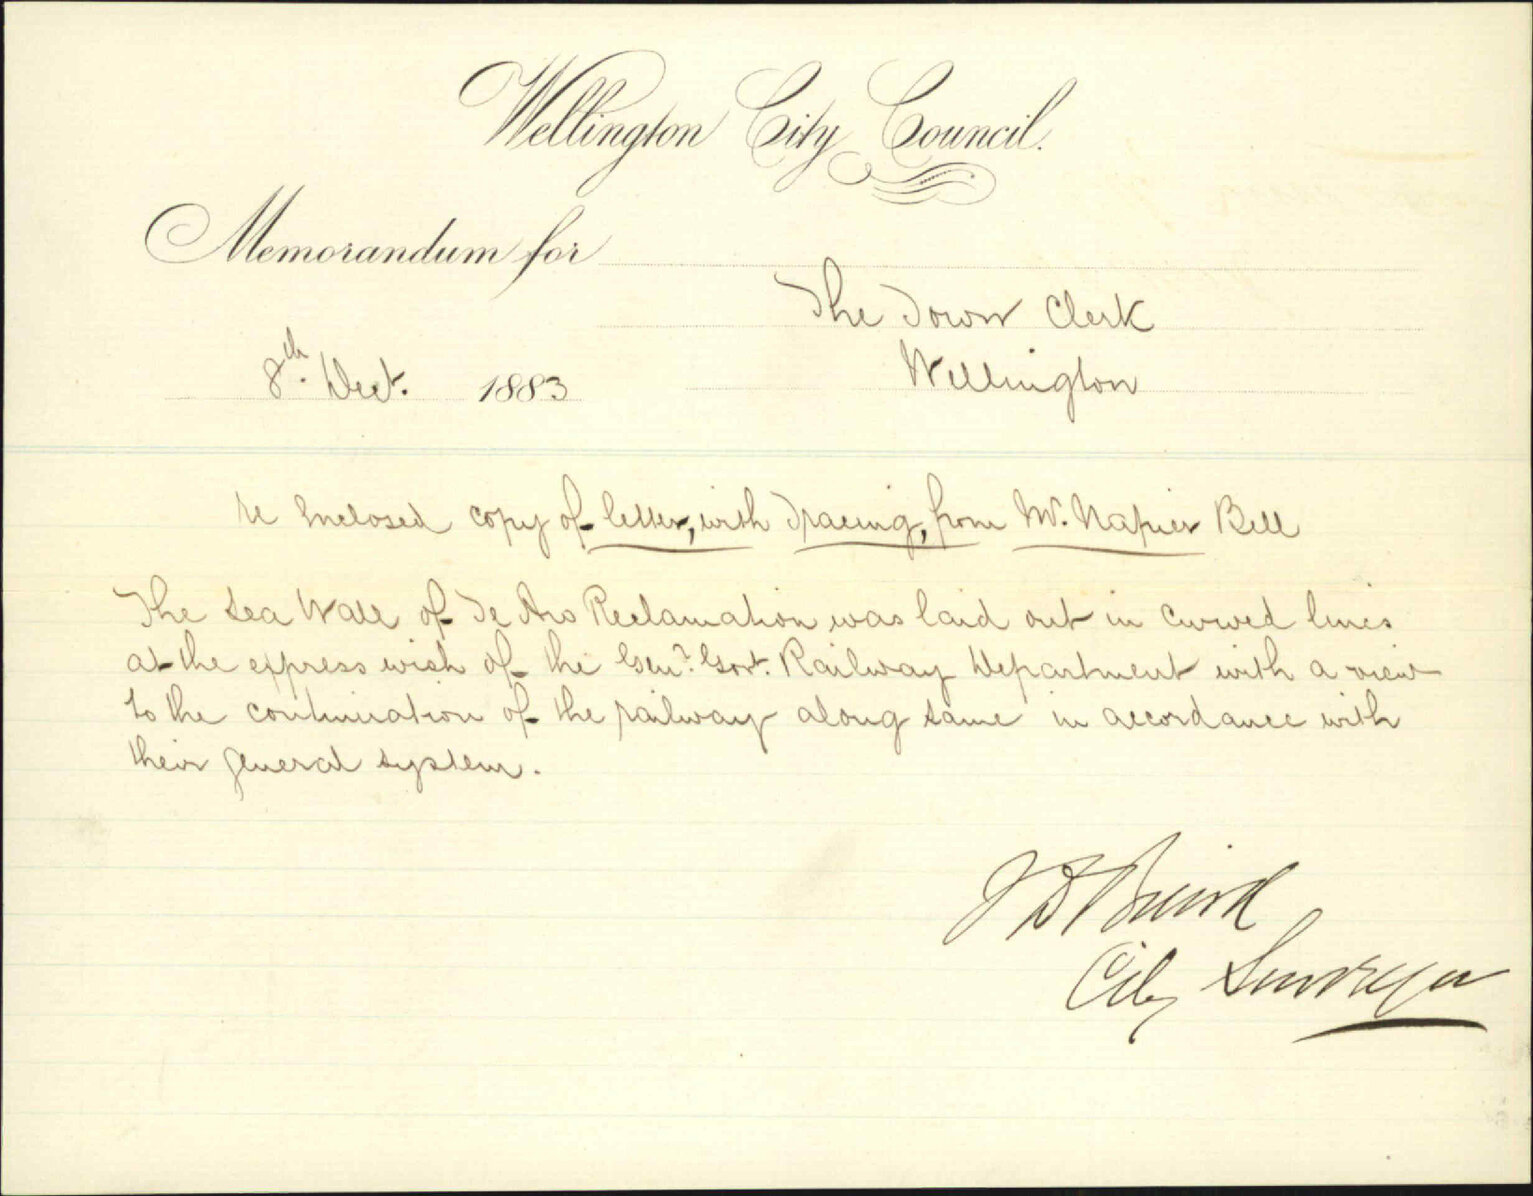 Wellington City Council.
Memorandum for
The Town Clerk
8th. Dect. 1883 Wellington
re Enclosed copy of letter, with Tracing, from Mr. Napier Bell
The Sea Wall of Te Aro Reclamation was laid out in curved lines
at the express wish of the Genl. Govt. Railway Department with a view
to the continuation of the railway along same in accordance with
their general system.
J D Baird
City Surveyor